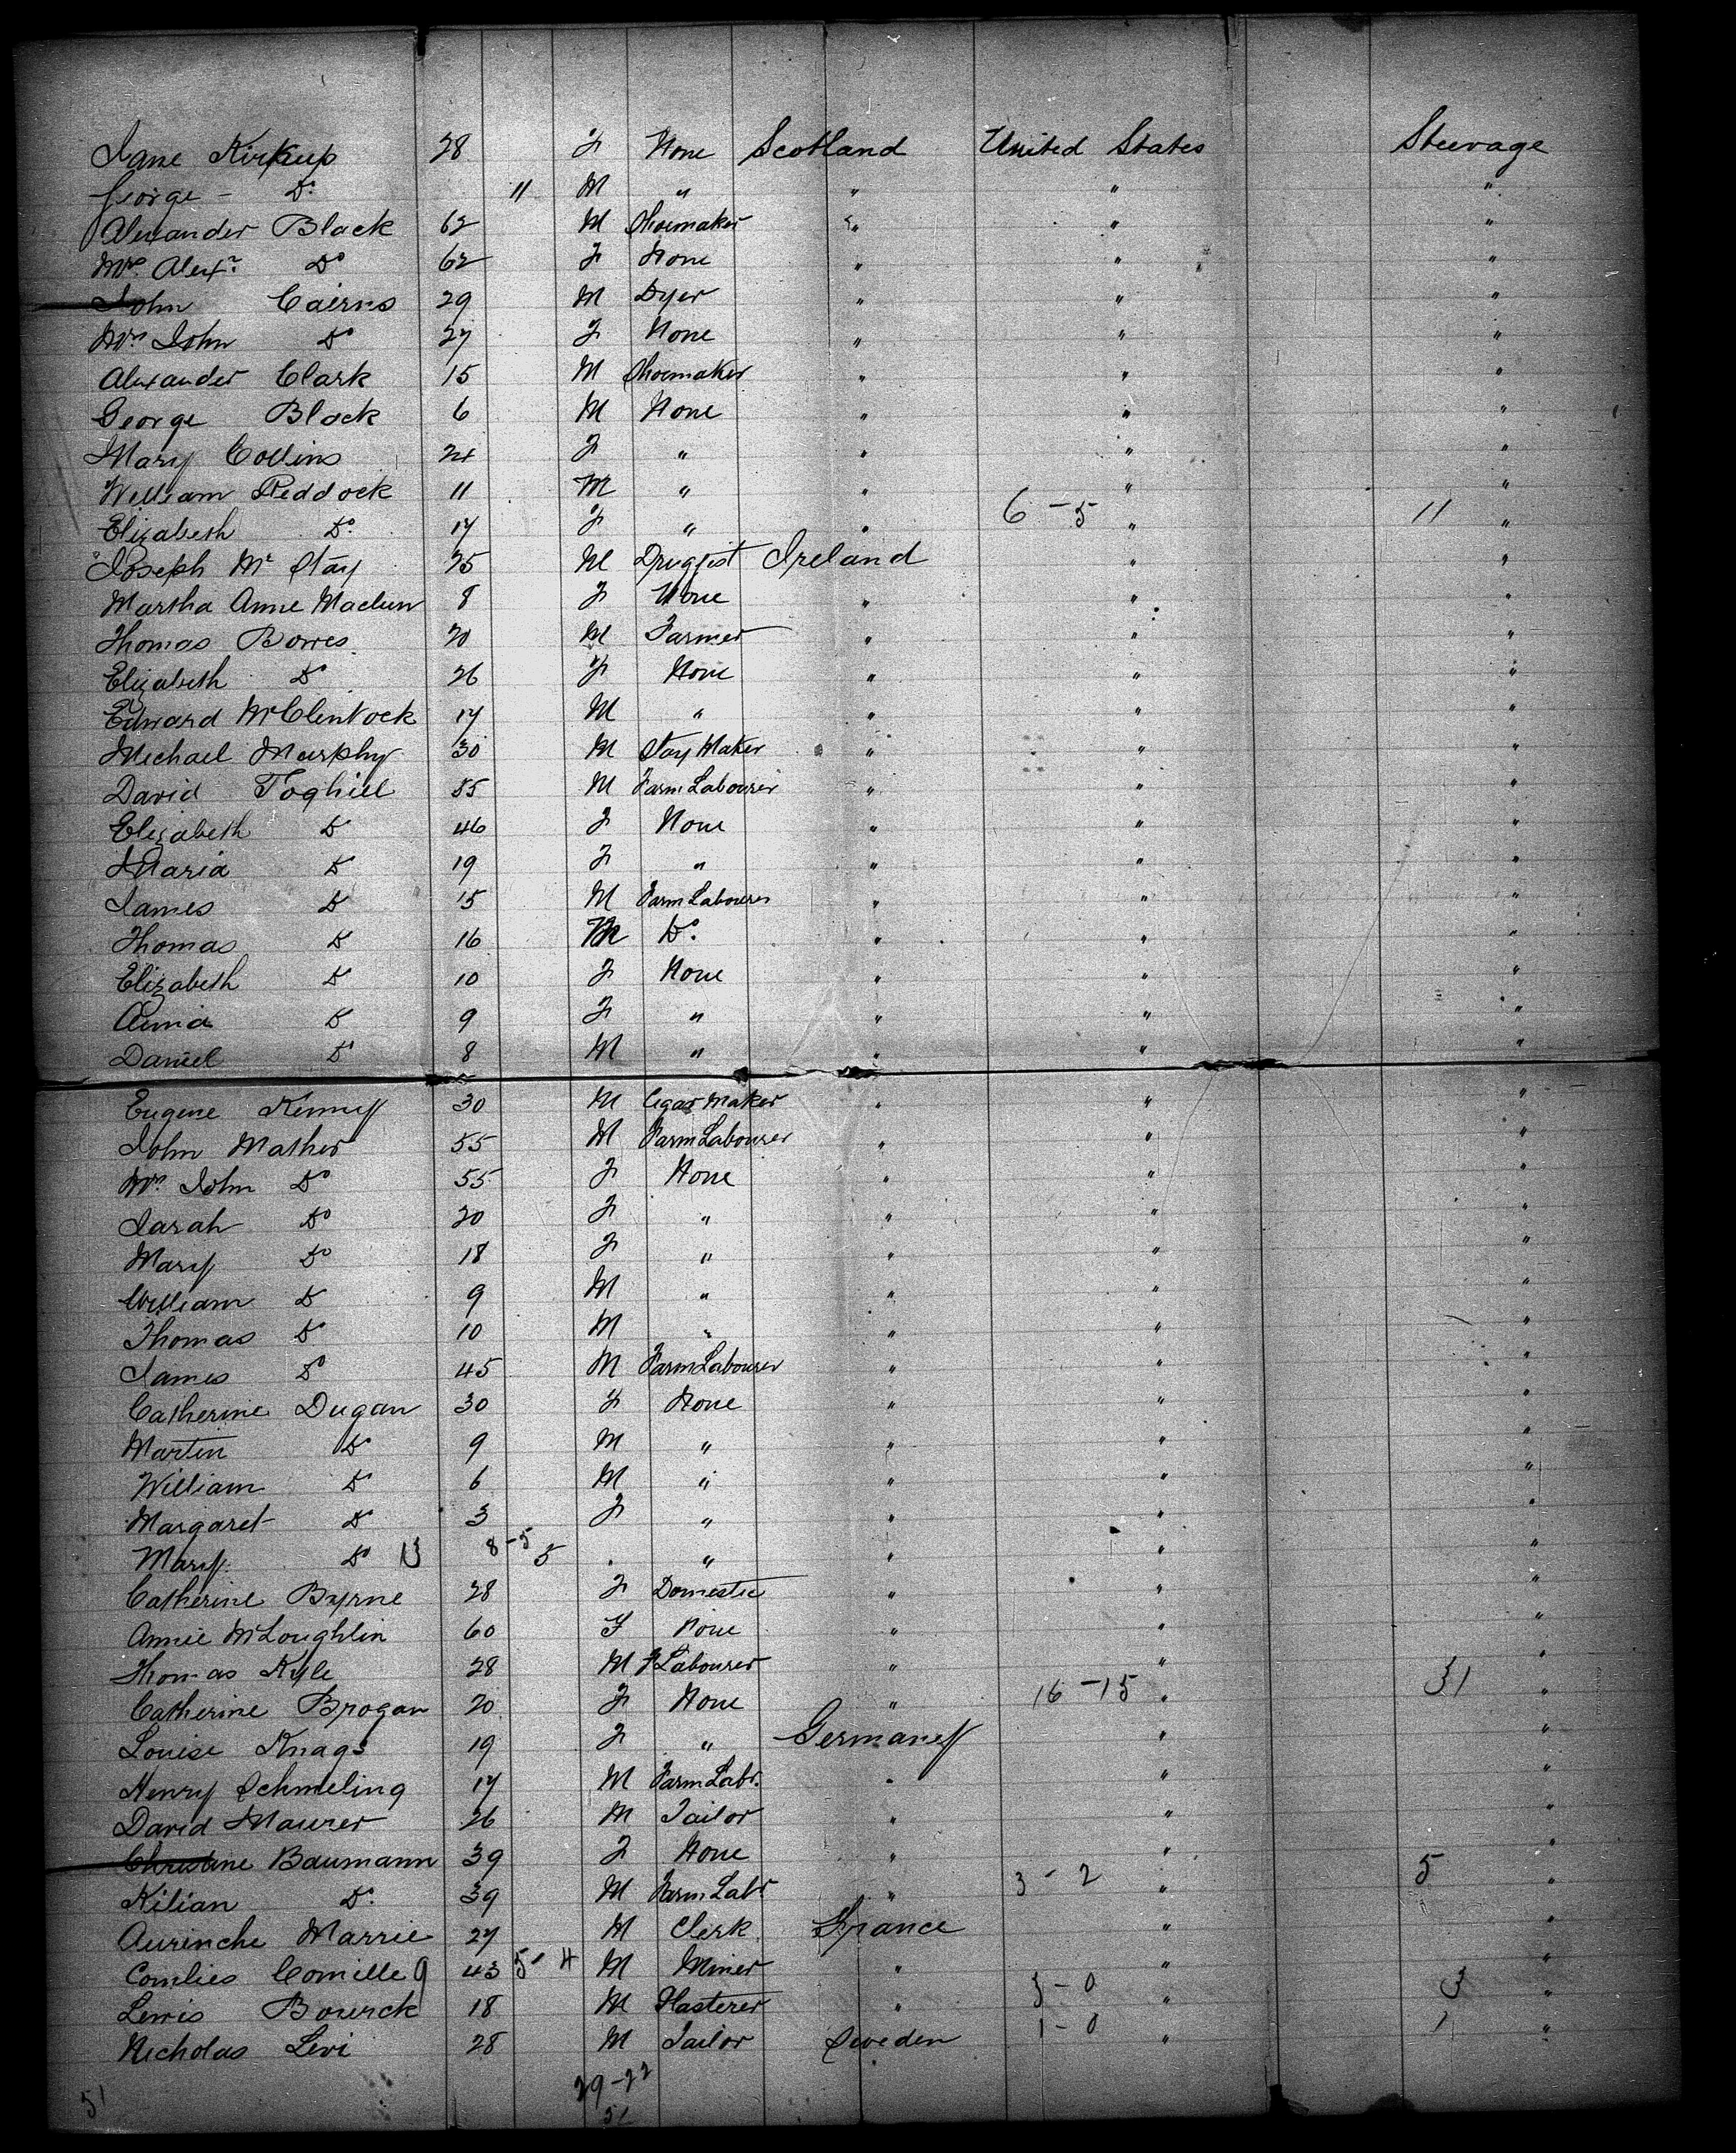 Jane Kirkup 28 F None Scotland United States Steerage
George - Do 11 M " " " "
Alexander Black 62 M Shoemaker " " "
Mrs Alexr Do 62 F None " " "
John Cairns 29 M Dyer " " "
Mrs John Do 27 F None " " "
Alexander Clark 15 M Shoemaker " " "
George Black 6 M None " " "
Mary Collins 24 F " " " "
William Reddock 11 M " " " "
Elizabeth Do 17 F " " 6-5 " 11 "
Joseph McStay 25 M Druggist Ireland " "
Martha Anne 8 F None " " "
Thomas 20 M Farmer " " "
Elizabeth Do 26 F None " " "
Edward McClintock 17 M " " " "
Michael Murphy 30 M Stay Maker " " "
David Toghill 55 M Farm Labourer " " "
Elizabeth Do 46 F None " " "
Maria Do 19 F " " " "
James Do 15 M Farm Labourer " " "
Thomas Do 16 M Do. " " "
Elizabeth Do 10 F None " " "
Do 9 F " " " "
Daniel Do 8 M " " " "
Eugene Kenny 30 M Cigar Maker " " "
John Mather 55 M Farm Labourer " " "
Mrs John Do 55 F None " " "
Sarah Do 20 F " " " "
Mary Do 18 F " " " "
William Do 9 M " " " "
Thomas Do 10 M " " " "
James Do 45 M Farm Labourer " " "
Catherine Dugan 30 F None " " "
Martin Do 9 M " " " "
William Do 6 M " " " "
Margaret Do 3 F " " " "
Mary Do 13 8-5 5 " " " "
Catherine Byrne 28 F Domestic " " "
Annie McLoughlin 60 F None " " "
Thomas Kyle 28 M F Labourer " " "
Catherine Brogan 20 F None " 16-15 " 31 "
Louise Knags 19 F " Germany " "
Henry Schmeling 17 M Farm Labr. " " "
David Maurer 26 M Tailor " " "
Christine Baumann 39 F None " " "
Kilian Do 39 M Farm Labr " 3-2 " 5 "
Marrie 27 M Clerk France " "
Comille 9 43 5 4 M Miner " " "
Lewis Bourck 18 M Plasterer " 3-0 " 3 "
Nicholas Levi 28 M Tailor Sweden 1-0 " 1 "
29-22
51 51